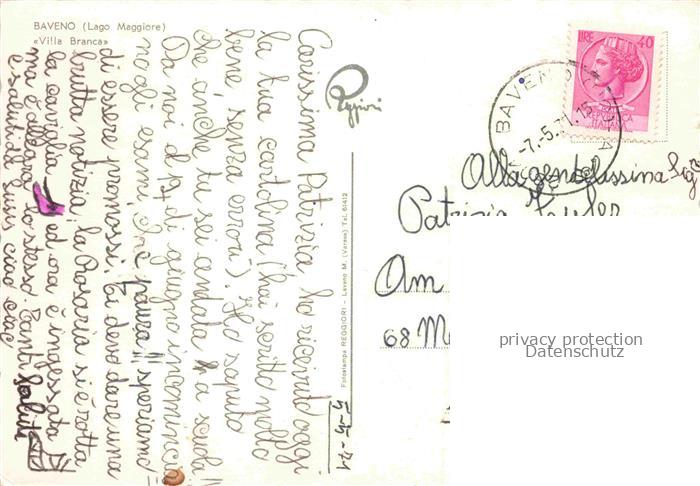 BAVENO (Lago Maggiore)
«Villa Branca»
Carissima Patrizia ho ricevuto oggi
la tua cartolina (hai scritto molto
bene, senza errori). Ho saputo
che anche tu sei andata a scuola!!
Da noi il 14 di giugno incomincia
no gli esami, che paura!! speriamo
di essere promossi. Ti devo dare una
brutta notizia, la Rosaria si è rotta
la caviglia ed ora è ingessata
ma è allegra lo stesso. Tanti saluti
e saluti da Susy ciao ciao
Reggiori
Fotostampa REGGIORI - Laveno M. (Varese) Tel. 61412
5-5-71
LIRE 40
REPUBBLICA
ITALIANA
BAVENO
-7.5.71.15
Alla gentilissima Sig
Patrizia
Am
68 M
privacy protection
Datenschutz